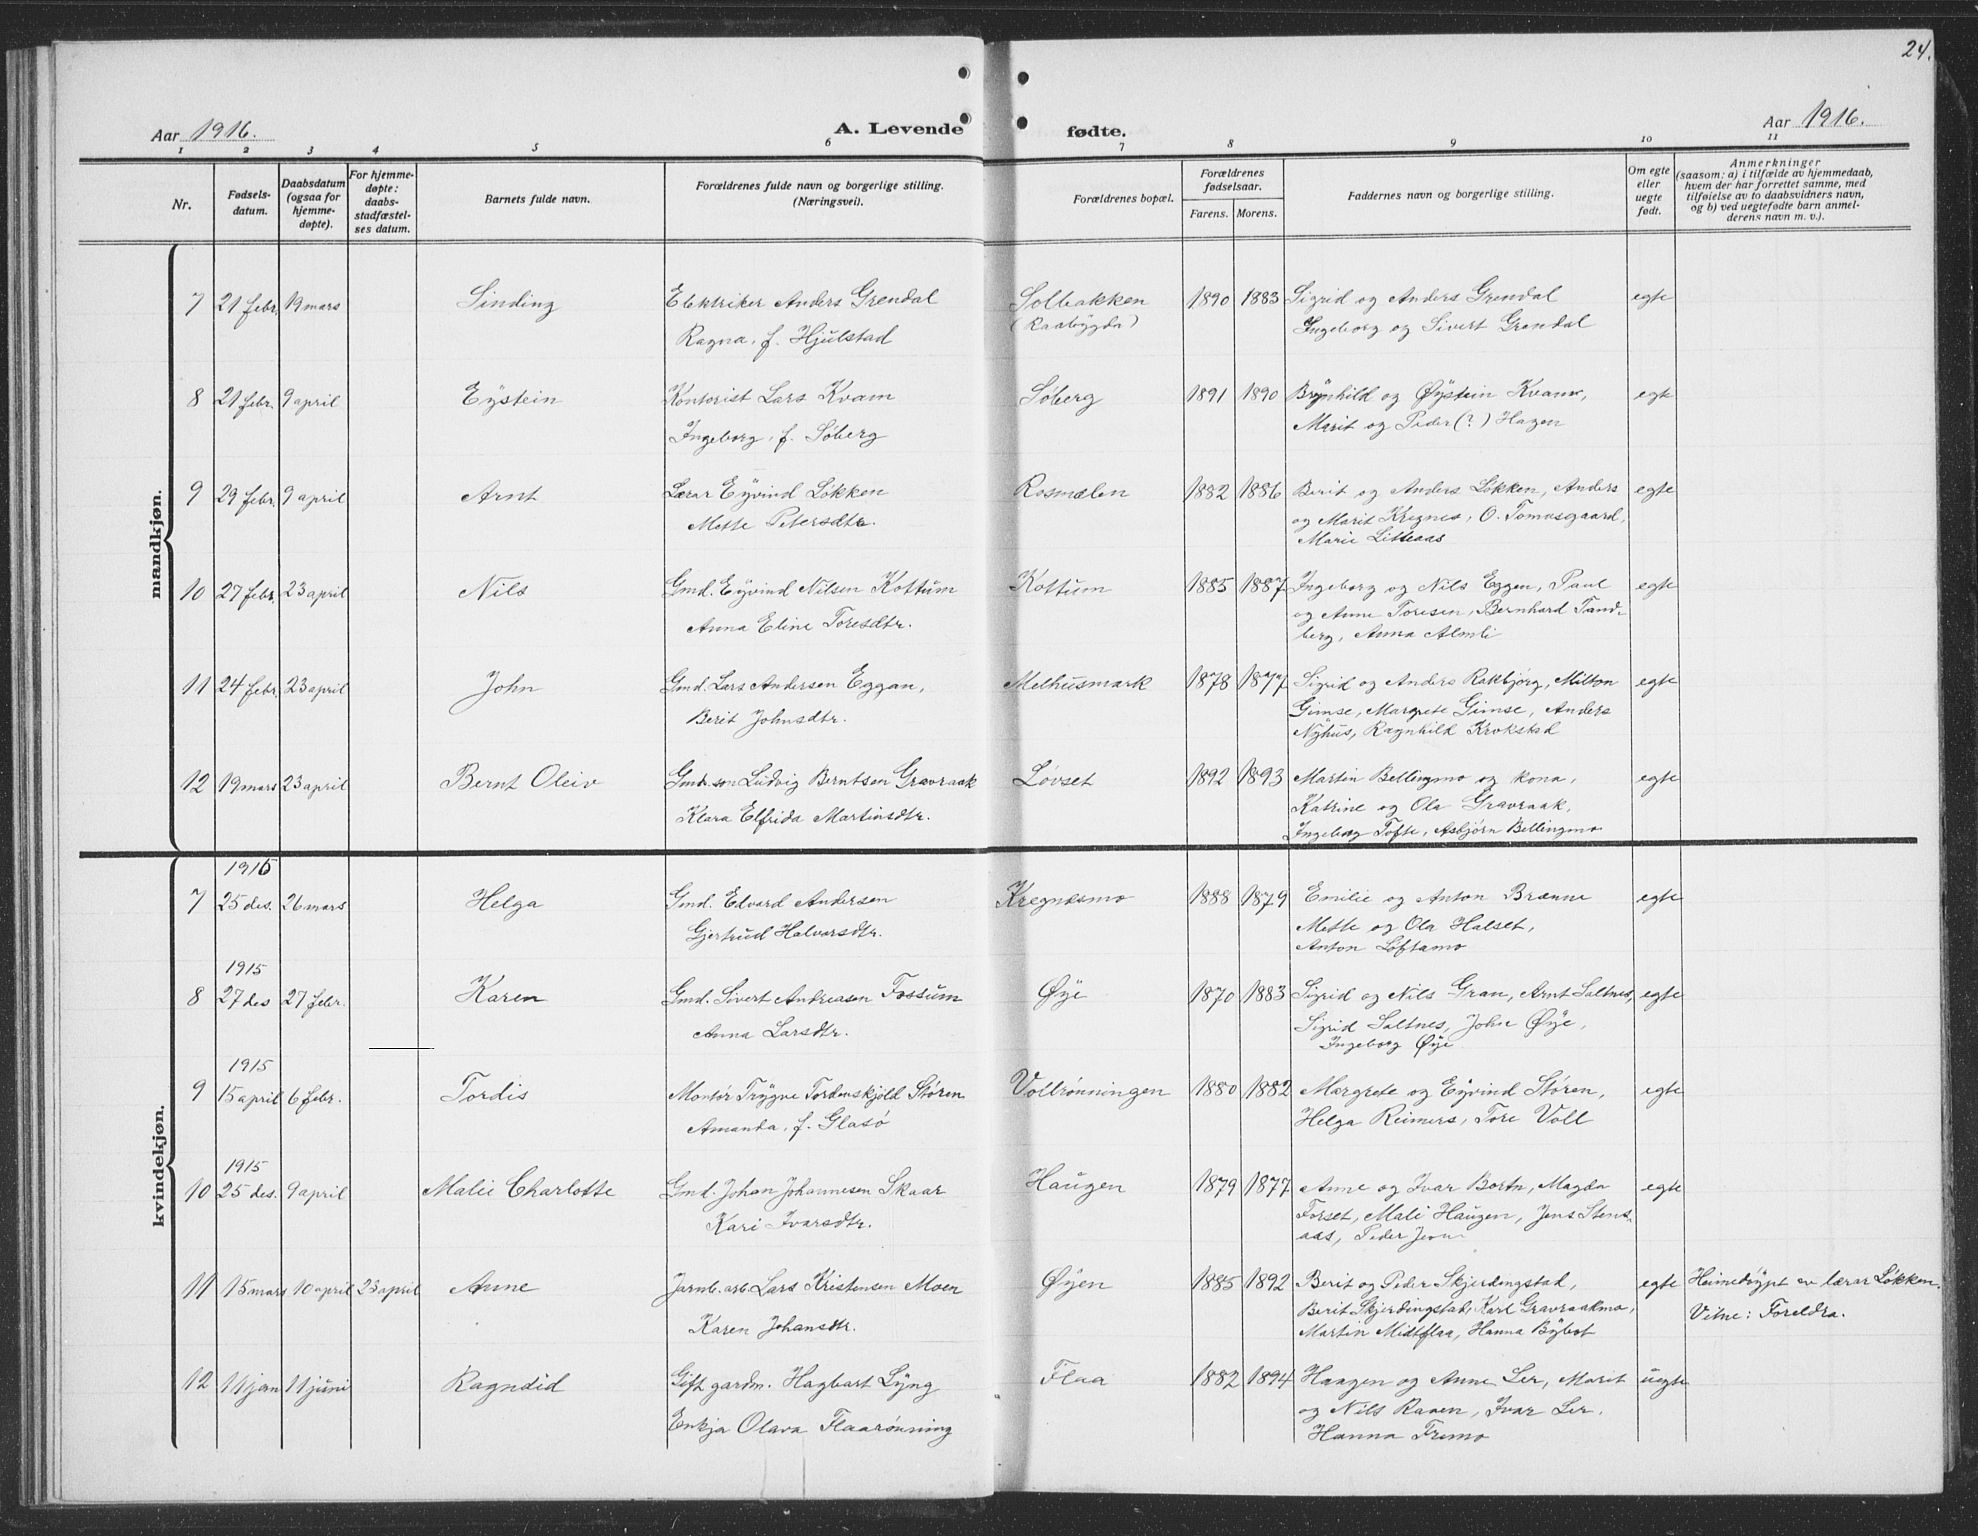 24.
Aar 1916.
A. Levende
fødte.
Aar 1916.
1 2 3 4 5 6 7 8 9 10 11
Nr.
Fødsels-
datum.
Daabsdatum
(ogsaa for
hjemme-
døpte).
For hjemme-
døpte:
daabs-
stadfæstel-
ses datum.
Barnets fulde navn.
Forældrenes fulde navn og borgerlige stilling.
(Næringsvei).
Forældrenes bopæl.
Forældrenes
fødselsaar.
Farens. Morens.
Faddernes navn og borgerlige stilling.
Om egte
eller
uegte
født.
Anmerkninger
(saasom: a) i tilfælde av hjemmedaab,
hvem der har forrettet samme, med
tilføielse av to daabsvidners navn,
og b) ved uegtefødte barn anmel-
derens navn m. v.).
mandkjøn.
7 21 febr. 19 mars Sinding Elektriker Anders Grendal Solbakken 1890 1883 Sigrid og Anders Grendal egte
(Raabygda) Ingeborg og Sivert Grendal
Ragna, f. Hjulstad
8 21 febr. 9 april Eystein Kontorist Lars Kvam Søberg 1891 1890 Brynhild og Øystein Kvam, egte
Ingeborg, f. Søberg Marit og Peder (?) Hagen
9 29 febr. 9 april Arnt Lærar Eyvind Løkken Rosmælen 1882 1886 Berit og Anders Løkken, Anders egte
Mette Petersdtr. og Marit Kregnes, O. Tomasgaard,
Marie Litleaas
10 27 febr. 23 april Nils Gmd. Eyvind Nilsen Kottum Kottum 1885 1887 Ingeborg og Nils Eggen, Paul egte
Anna Eline Toresdtr. og Anne Toresen, Bernhard Tand-
berg, Anna Almli
11 24 febr. 23 april John Gmd. Lars Andersen Eggan, Melhusmark 1878 1877 Sigrid og Anders Rakbjørg, Milton egte
Berit Johnsdtr. Gimse, Margrete Gimse, Anders
Nyhus, Ragnhild Krokstad
12 19 mars 23 april Bernt Oleiv Gmd.son Ludvig Berntsen Gravraak Løvset 1892 1893 Martin Bellingmo og kona, egte
Klara Elfrida Martinsdtr. Katrine og Ola Gravraak,
Ingeborg Tofte, Asbjørn Bellingmo
kvindekjøn.
1915
7 25 des. 26 mars Helga Gmd. Edvard Andersen Kregnesmo 1888 1879 Emilie og Anton Brænne egte
Gjertrud Halvorsdtr. Mette og Ola Halset,
Anton Løftamo
1915
8 27 des 27 febr. Karen Gmd. Sivert Andreasen Fossum Øye 1870 1883 Sigrid og Nils Gran, Arnt Saltnes, egte
Anna Larsdtr. Sigrid Saltnes, John Øye,
Ingeborg Øye
1915
9 15 april 6 febr. Tordis Montør Trygve Tordenskjold Støren Vollrønningen 1880 1882 Margrete og Eyvind Støren, egte
Amanda, f. Glasø Helga Reimers, Tore Voll
1915
10 25 des. 9 april Malie Charlotte Gmd. Johan Johannesen Skaar Haugen 1879 1877 Anne og Ivar Bortn, Magda egte
Kari Ivarsdtr. Forset, Mali Haugen, Jens Stens-
aas, Peder
11 15 mars 10 april 23 april Anne Jarnb.arb. Lars Kristensen Moen Øyen 1885 1892 Berit og Peder Skjerdingstad, egte Heimedøypt av lærar Løkken.
Karen Johansdtr. Berit Skjerdingstad, Karl Gravraakmo, Vitne: Foreldra.
Martin Midtflaa, Hanna Bybot
12 11 jan 11 juni Ragndid Gift gardm. Hagbart Lyng Flaa 1882 1894 Haagen og Anne Ler, Marit uegte
Enkja Olava Flaarønning og Nils Raaen, Ivar Ler,
Hanna Fremo